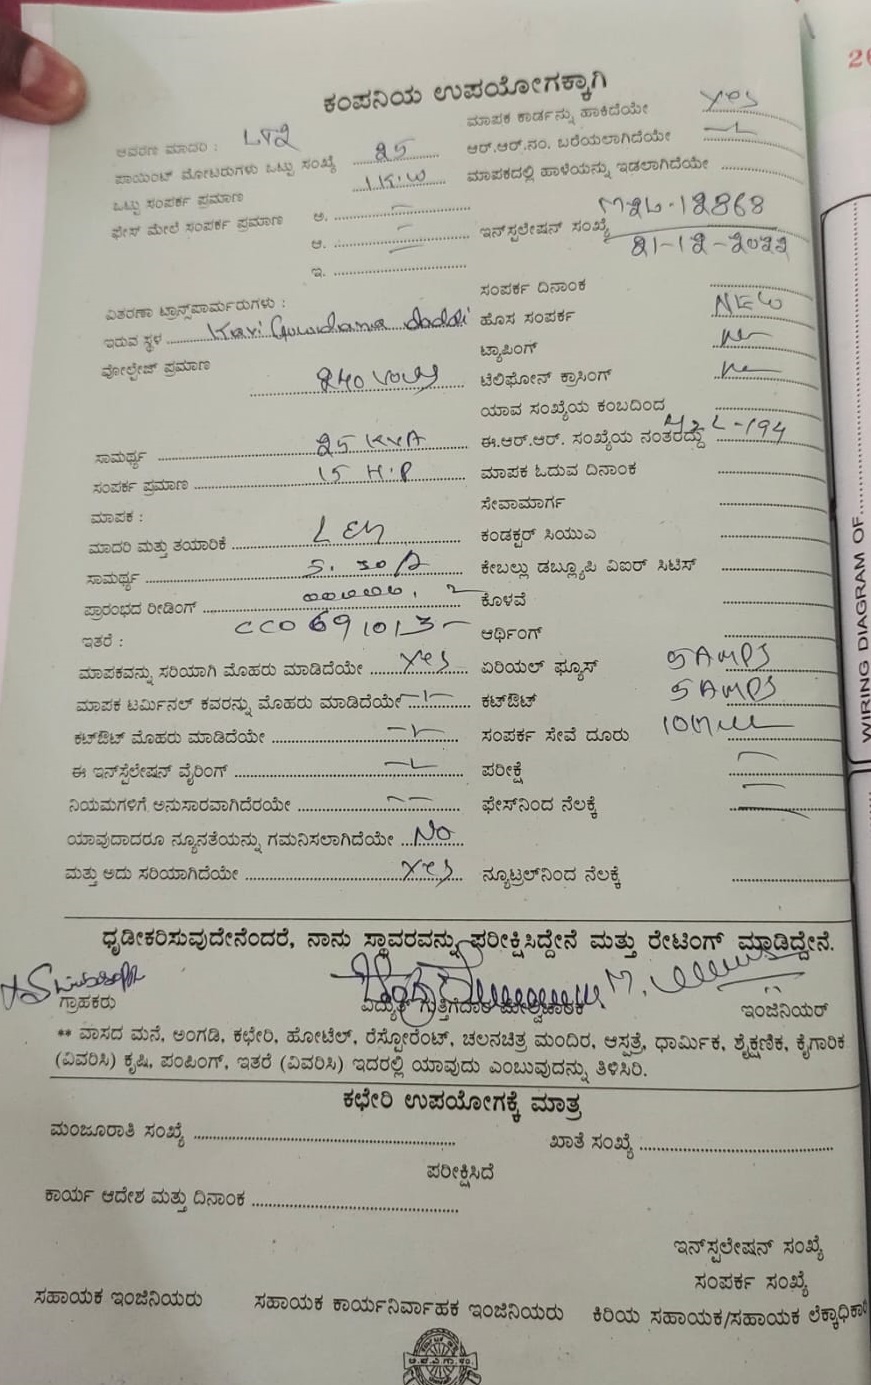 26
ಕಂಪನಿಯ ಉಪಯೋಗಕ್ಕಾಗಿ
ಆವರಣ ಮಾದರಿ : LT2
ಮಾಪಕ ಕಾರ್ಡನ್ನು ಹಾಕಿದೆಯೇ Yes
ಪಾಯಿಂಟ್ ಮೋಟರುಗಳು ಒಟ್ಟು ಸಂಖ್ಯೆ 25
ಆರ್.ಆರ್.ನಂ. ಬರೆಯಲಾಗಿದೆಯೇ
ಒಟ್ಟು ಸಂಪರ್ಕ ಪ್ರಮಾಣ 1KW
ಮಾಪಕದಲ್ಲಿ ಹಾಳೆಯನ್ನು ಇಡಲಾಗಿದೆಯೇ
ಫೇಸ್ ಮೇಲೆ ಸಂಪರ್ಕ ಪ್ರಮಾಣ ಅ.
ಆ.
ಇ.
ಇನ್‌ಸ್ಟಲೇಷನ್ ಸಂಖ್ಯೆ M2L-12868
21-12-2022
ವಿತರಣಾ ಟ್ರಾನ್ಸ್‌ಫಾರ್ಮರುಗಳು :
ಸಂಪರ್ಕ ದಿನಾಂಕ
ಇರುವ ಸ್ಥಳ
ಹೊಸ ಸಂಪರ್ಕ NEW
ಟ್ಯಾಪಿಂಗ್
ವೋಲ್ಟೇಜ್ ಪ್ರಮಾಣ 240 Volts
ಟೆಲಿಫೋನ್ ಕ್ರಾಸಿಂಗ್
ಯಾವ ಸಂಖ್ಯೆಯ ಕಂಬದಿಂದ
ಸಾಮರ್ಥ್ಯ 25 KVA
ಈ.ಆರ್.ಆರ್. ಸಂಖ್ಯೆಯ ನಂತರದ್ದು
ಸಂಪರ್ಕ ಪ್ರಮಾಣ 15 H.P
ಮಾಪಕ ಓದುವ ದಿನಾಂಕ
ಮಾಪಕ :
ಸೇವಾಮಾರ್ಗ
ಮಾದರಿ ಮತ್ತು ತಯಾರಿಕೆ
ಕಂಡಕ್ಟರ್ ಸಿಯುಎ
ಸಾಮರ್ಥ್ಯ 5-30A
ಕೇಬಲ್ಲು ಡಬ್ಲ್ಯೂಪಿ ವಿಐರ್ ಸಿಟಿಸ್
ಪ್ರಾರಂಭದ ರೀಡಿಂಗ್
ಕೊಳವೆ
ಇತರೆ : CCO691013
ಆರ್ಥಿಂಗ್
ಮಾಪಕವನ್ನು ಸರಿಯಾಗಿ ಮೊಹರು ಮಾಡಿದೆಯೇ Yes
ಏರಿಯಲ್ ಫ್ಯೂಸ್ 5 AMPS
ಮಾಪಕ ಟರ್ಮಿನಲ್ ಕವರನ್ನು ಮೊಹರು ಮಾಡಿದೆಯೇ
ಕಟ್‌ಔಟ್ 5 AMPS
ಕಟ್‌ಔಟ್ ಮೊಹರು ಮಾಡಿದೆಯೇ
ಸಂಪರ್ಕ ಸೇವೆ ದೂರು
ಈ ಇನ್‌ಸ್ಟೆಲೇಷನ್ ವೈರಿಂಗ್
ಪರೀಕ್ಷೆ
ನಿಯಮಗಳಿಗೆ ಅನುಸಾರವಾಗಿದೆರಯೇ
ಫೇಸ್‌ನಿಂದ ನೆಲಕ್ಕೆ
ಯಾವುದಾದರೂ ನ್ಯೂನತೆಯನ್ನು ಗಮನಿಸಲಾಗಿದೆಯೇ No
ಮತ್ತು ಅದು ಸರಿಯಾಗಿದೆಯೇ Yes
ನ್ಯೂಟ್ರಲ್‌ನಿಂದ ನೆಲಕ್ಕೆ
ಧೃಡೀಕರಿಸುವುದೇನೆಂದರೆ, ನಾನು ಸ್ಥಾವರವನ್ನು ಪರೀಕ್ಷಿಸಿದ್ದೇನೆ ಮತ್ತು ರೇಟಿಂಗ್ ಮಾಡಿದ್ದೇನೆ.
ಗ್ರಾಹಕರು ವಿದ್ಯುತ್ ಗುತ್ತಿಗೆದಾರ ಮೇಲ್ವಿಚಾರಕ ಇಂಜಿನಿಯರ್
** ವಾಸದ ಮನೆ, ಅಂಗಡಿ, ಕಛೇರಿ, ಹೋಟೆಲ್, ರೆಸ್ಟೋರೆಂಟ್, ಚಲನಚಿತ್ರ ಮಂದಿರ, ಆಸ್ಪತ್ರೆ, ಧಾರ್ಮಿಕ, ಶೈಕ್ಷಣಿಕ, ಕೈಗಾರಿಕ
(ವಿವರಿಸಿ) ಕೃಷಿ, ಪಂಪಿಂಗ್, ಇತರೆ (ವಿವರಿಸಿ) ಇದರಲ್ಲಿ ಯಾವುದು ಎಂಬುವುದನ್ನು ತಿಳಿಸಿರಿ.
ಕಛೇರಿ ಉಪಯೋಗಕ್ಕೆ ಮಾತ್ರ
ಮಂಜೂರಾತಿ ಸಂಖ್ಯೆ
ಖಾತೆ ಸಂಖ್ಯೆ
ಪರೀಕ್ಷಿಸಿದೆ
ಕಾರ್ಯ ಆದೇಶ ಮತ್ತು ದಿನಾಂಕ
ಇನ್‌ಸ್ಪಲೇಷನ್ ಸಂಖ್ಯೆ
ಸಂಪರ್ಕ ಸಂಖ್ಯೆ
ಸಹಾಯಕ ಇಂಜಿನಿಯರು ಸಹಾಯಕ ಕಾರ್ಯನಿರ್ವಾಹಕ ಇಂಜಿನಿಯರು ಕಿರಿಯ ಸಹಾಯಕ/ಸಹಾಯಕ ಲೆಕ್ಕಾಧಿಕಾರಿ
WIRING DIAGRAM OF